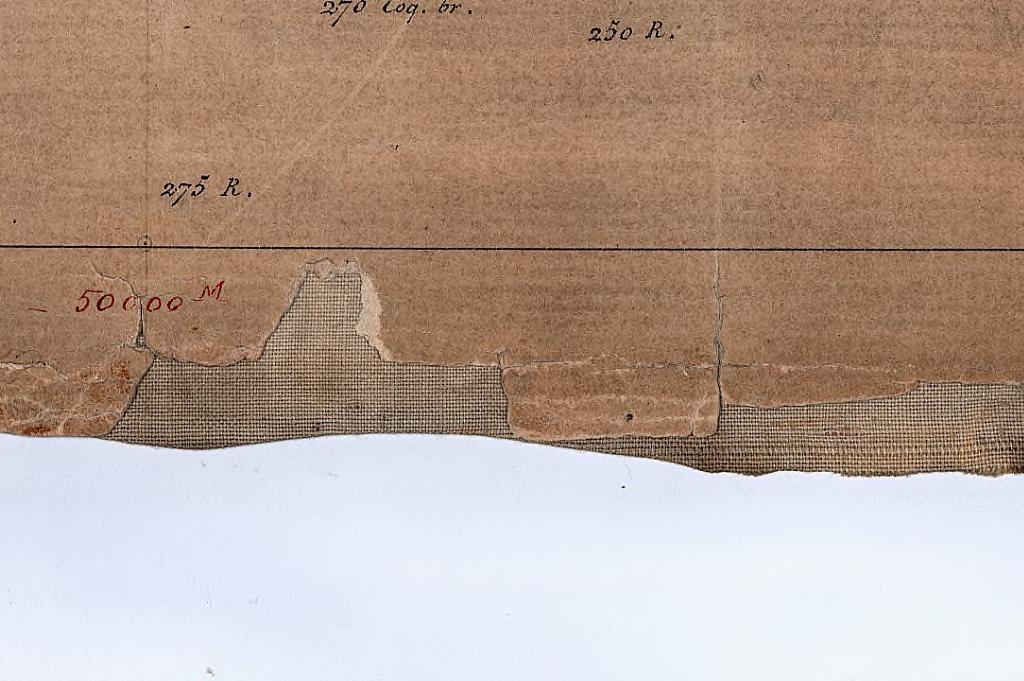 270 Coq. br.
250 R.
275 R.
- 50000 M